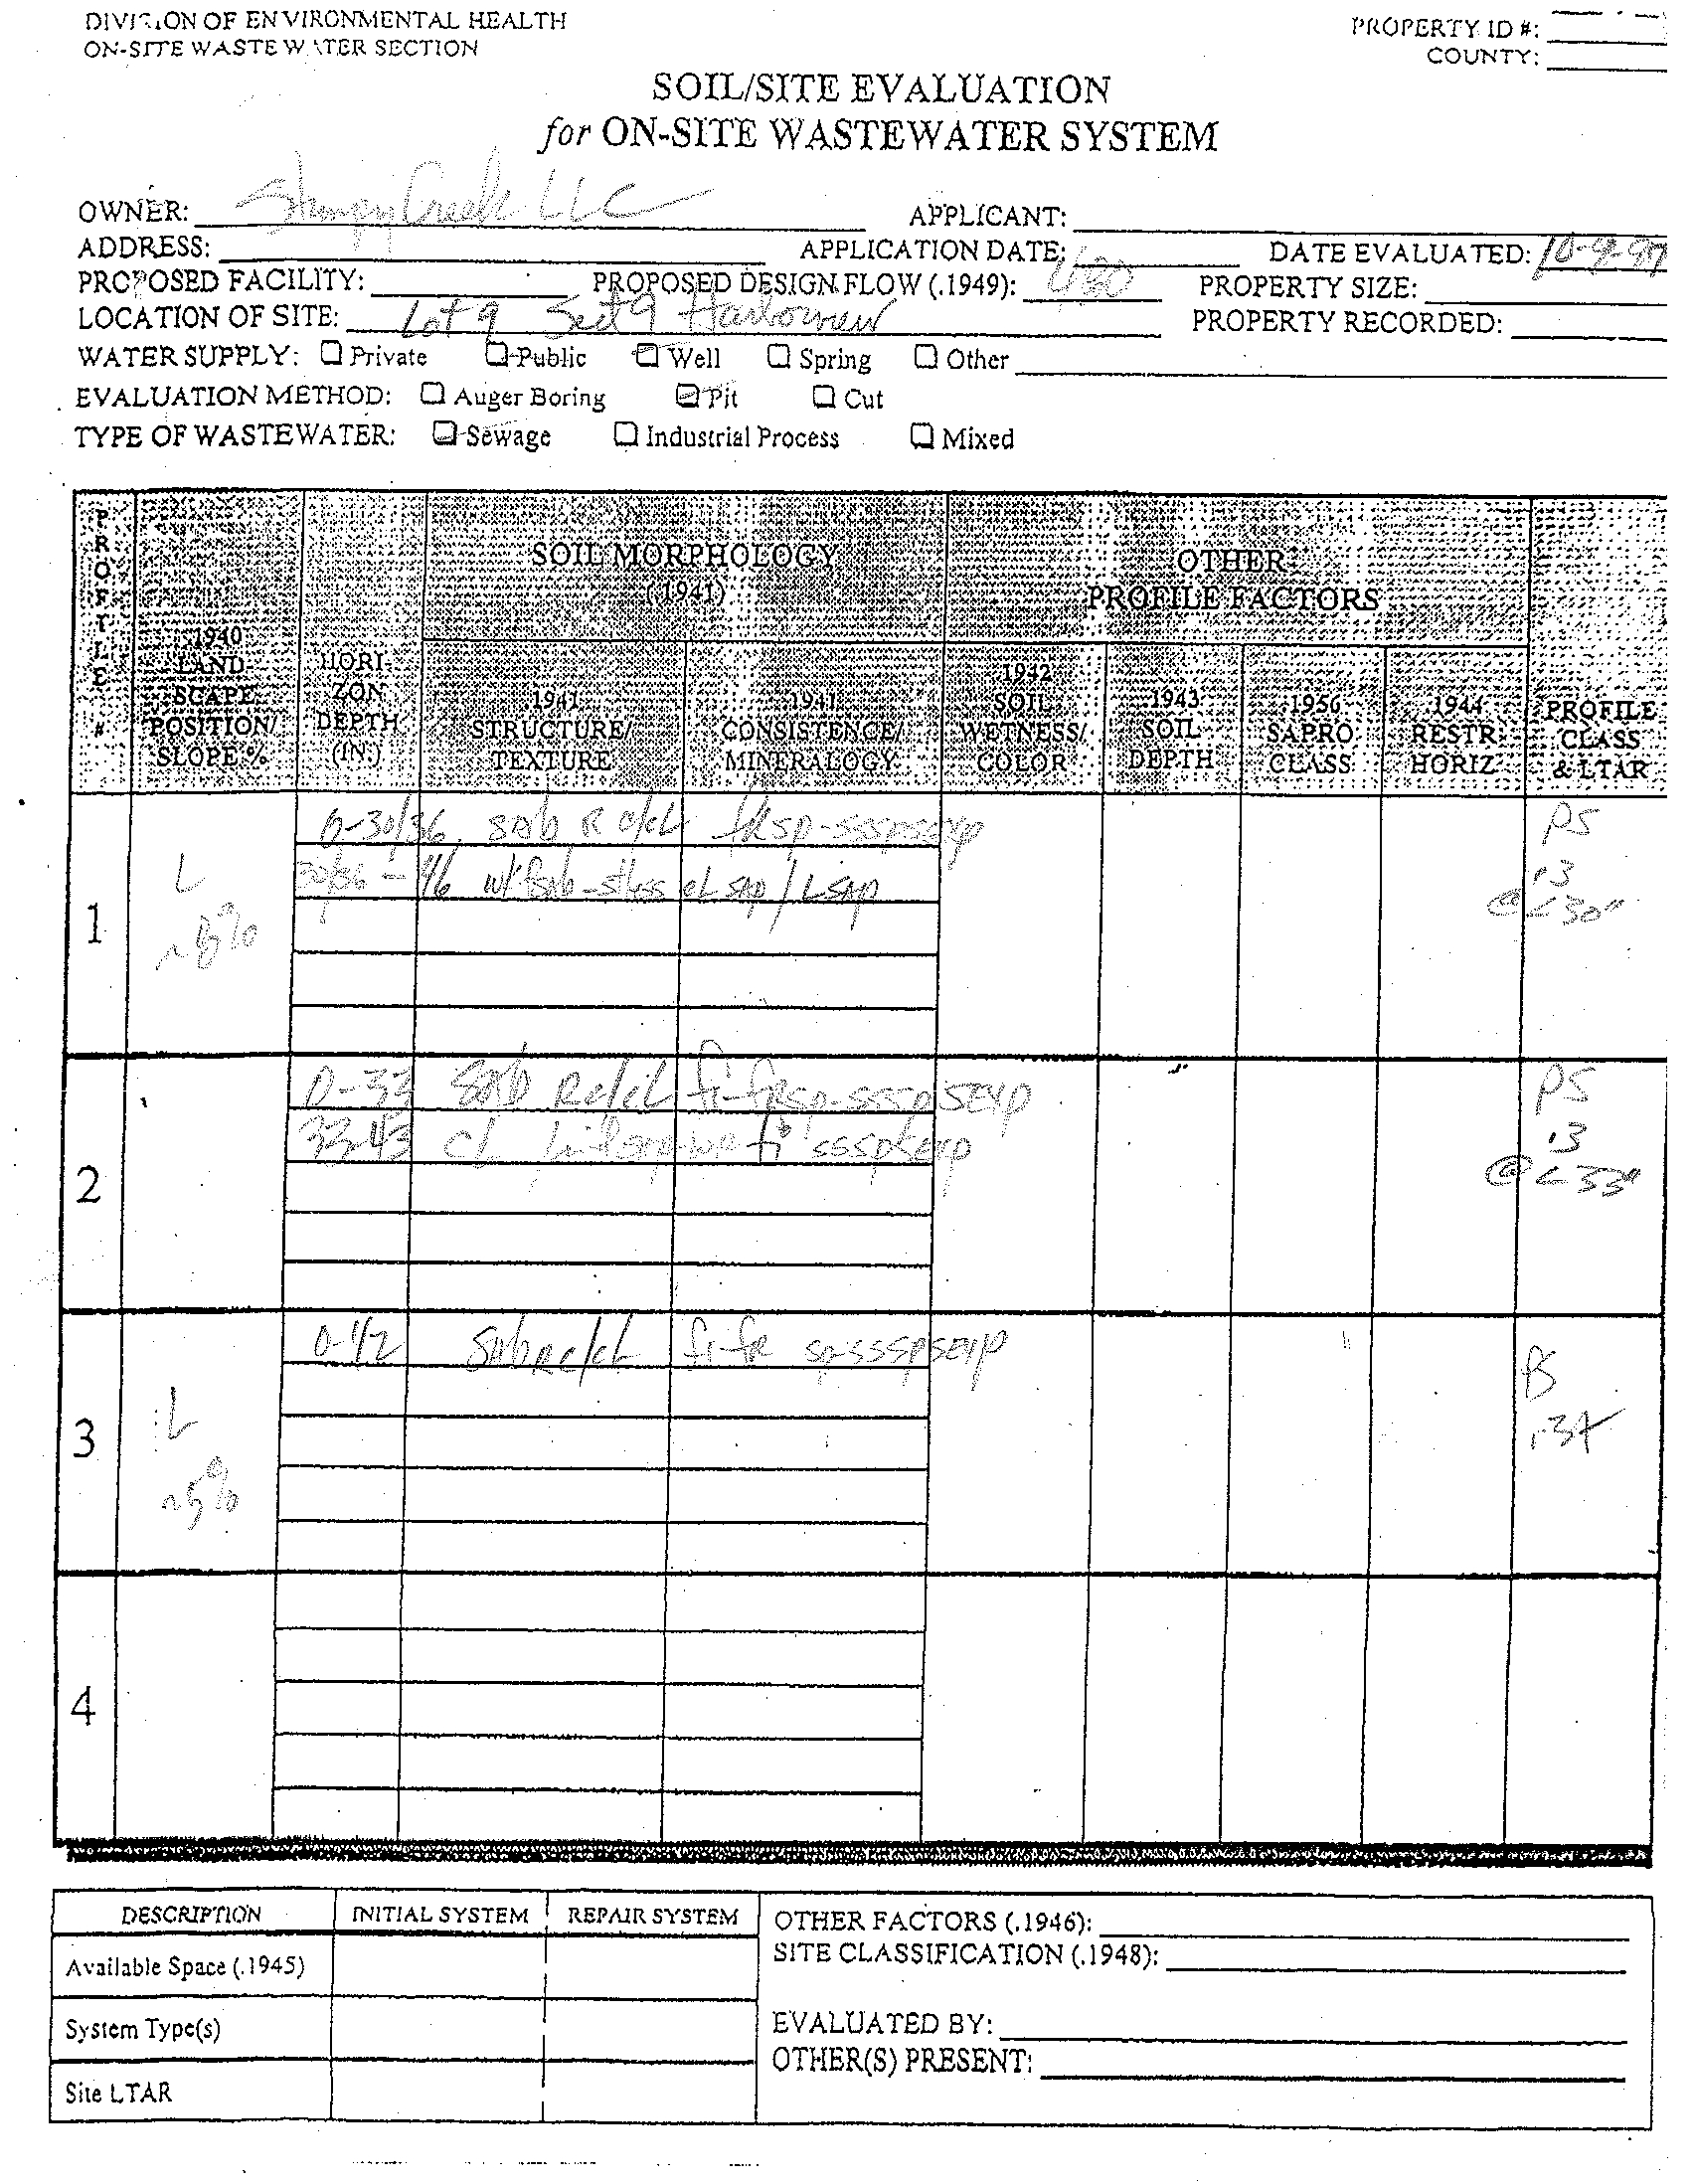 DIVISION OF ENVIRONMENTAL HEALTH
ON-SITE WASTEWATER SECTION
PROPERTY ID #:
COUNTY:
SOIL/SITE EVALUATION
for ON-SITE WASTEWATER SYSTEM
OWNER: Stumpy Creek LLC APPLICANT:
ADDRESS: APPLICATION DATE: DATE EVALUATED: 10-9-97
PROPOSED FACILITY: PROPOSED DESIGN FLOW (.1949): 480 PROPERTY SIZE:
LOCATION OF SITE: Lot 9 Sect 9 Harborview PROPERTY RECORDED:
WATER SUPPLY: Private Public Well Spring Other
EVALUATION METHOD: Auger Boring Pit Cut
TYPE OF WASTEWATER: Sewage Industrial Process Mixed
PROFILE #
.1940 LAND SCAPE POSITION/ SLOPE %
HORI ZON DEPTH (IN.)
SOIL MORPHOLOGY (.1941)
.1941 STRUCTURE/ TEXTURE
.1941 CONSISTENCE/ MINERALOGY
OTHER PROFILE FACTORS
.1942 SOIL WETNESS/ COLOR
.1943 SOIL DEPTH
.1956 SAPRO CLASS
.1944 RESTR HORIZ
PROFILE CLASS & LTAR
1 L ~8%
0-30/36 sab R c/cL fRsp-ssspsexp
30/36-46 w/ cL sap / L sap
PS .3 @<30"
2
0-33 Sab Rc/cL fi-fRsp-ssspsexp
33-43 cL fi ssspsexp
PS .3 @<33"
3 L ~5%
0-42 Sab Rc/cL fi-fR sp-ssspsexp
PS
4
DESCRIPTION INITIAL SYSTEM REPAIR SYSTEM
Available Space (.1945)
System Type(s)
Site LTAR
OTHER FACTORS (.1946):
SITE CLASSIFICATION (.1948):
EVALUATED BY:
OTHER(S) PRESENT: